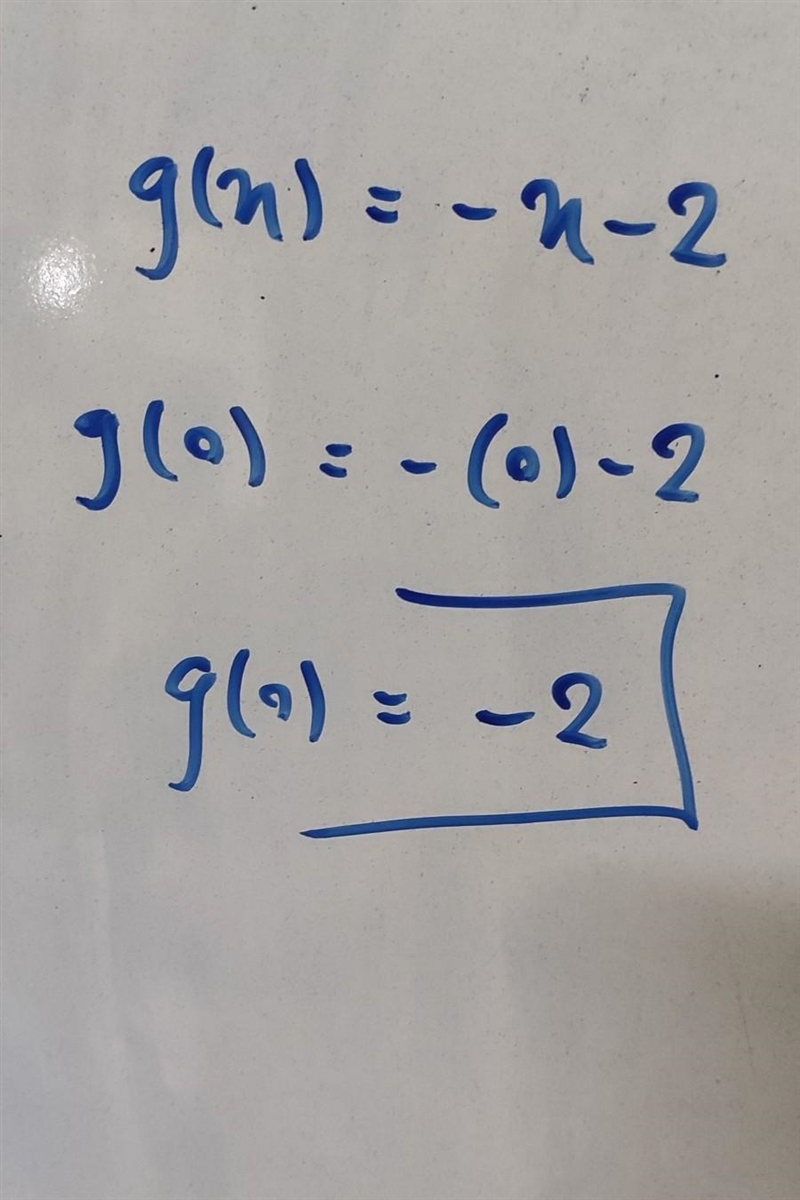 g(x) = -x-2
g(0) = -(0)-2
g(0) = -2